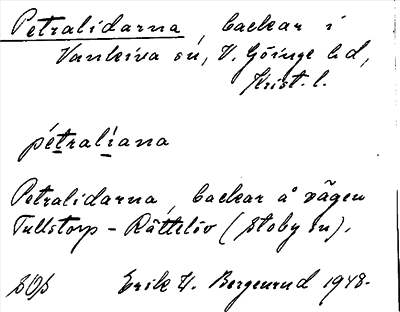 Petralidarna, backar i
Vankiva sn, V. Göinge hd,
Krist. l.
pétralíana
Petralidarna, backar å vägen
Tullstorp - Rättelöv (Stoby sn).
Erik H. Bergenrud 1948.